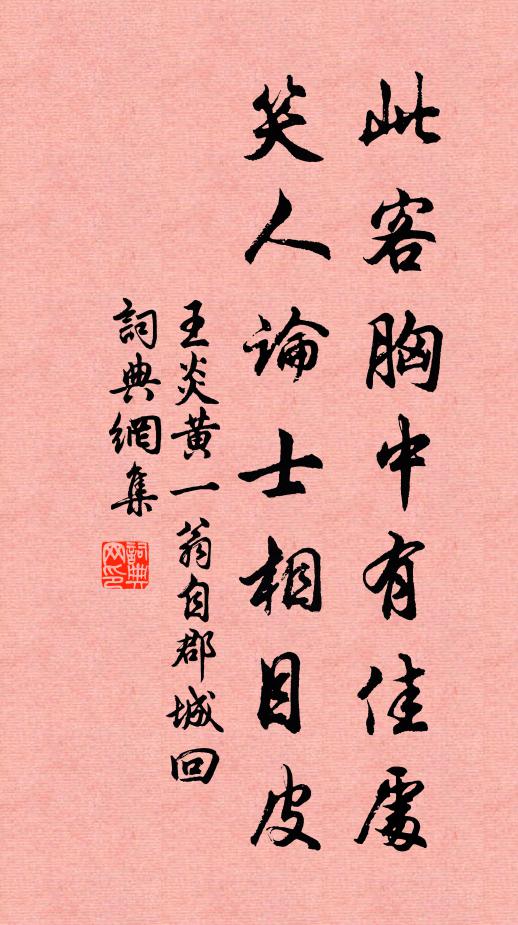 此客胸中有佳處
笑人論士相目皮
王炎黃一翁自郡城回
詞典網集
詞典网印